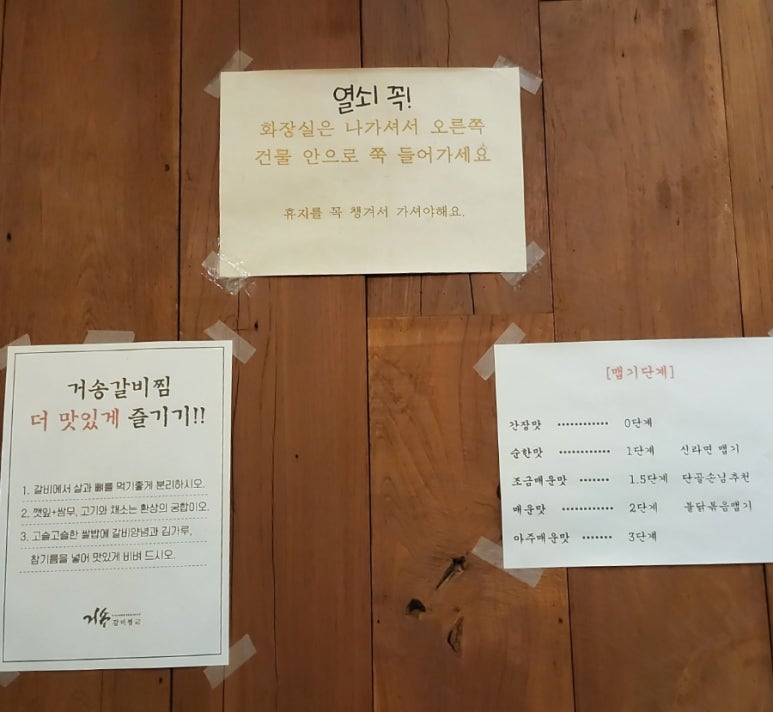 열쇠 꼭!
화장실은 나가셔서 오른쪽
건물 안으로 쭉 들어가세요
휴지를 꼭 챙겨서 가셔야해요.
거송갈비찜
더 맛있게 즐기기!!
1. 갈비에서 살과 뼈를 먹기좋게 분리하시오.
2. 깻잎+쌈무, 고기와 채소는 환상의 궁합이오.
3. 고슬고슬한 쌀밥에 갈비양념과 김가루,
참기름을 넣어 맛있게 비벼 드시오.
거송
갈비찜
[맵기단계]
간장맛 ············ 0단계
순한맛 ············ 1단계 신라면 맵기
조금매운맛 ······· 1.5단계 단골손님추천
매운맛 ············ 2단계 불닭볶음맵기
아주매운맛 ······· 3단계